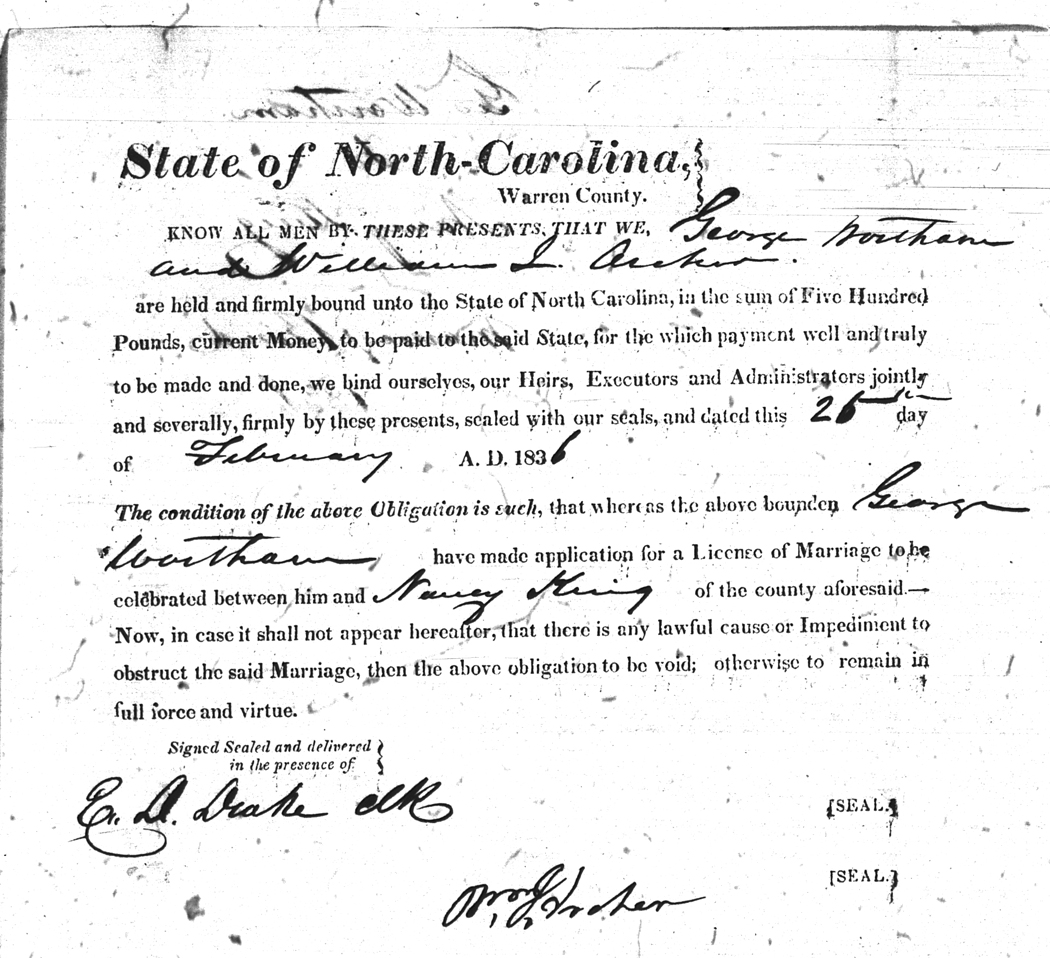 State of North-Carolina,
Warren County.
KNOW ALL MEN BY THESE PRESENTS, THAT WE, George Wortham
and William J. Archer.
are held and firmly bound unto the State of North Carolina, in the sum of Five Hundred
Pounds, current Money, to be paid to the said State, for the which payment well and truly
to be made and done, we bind ourselves, our Heirs, Executors and Administrators jointly
and severally, firmly by these presents, sealed with our seals, and dated this 26th day
of February A. D. 1836
The condition of the above Obligation is such, that whereas the above bounden George
Wortham have made application for a License of Marriage to be
celebrated between him and Nancy King of the county aforesaid.—
Now, in case it shall not appear hereafter, that there is any lawful cause or Impediment to
obstruct the said Marriage, then the above obligation to be void; otherwise to remain in
full force and virtue.
Signed Sealed and delivered
in the presence of
E. D. Drake clk
[SEAL.]
[SEAL.]
Wm J. Archer